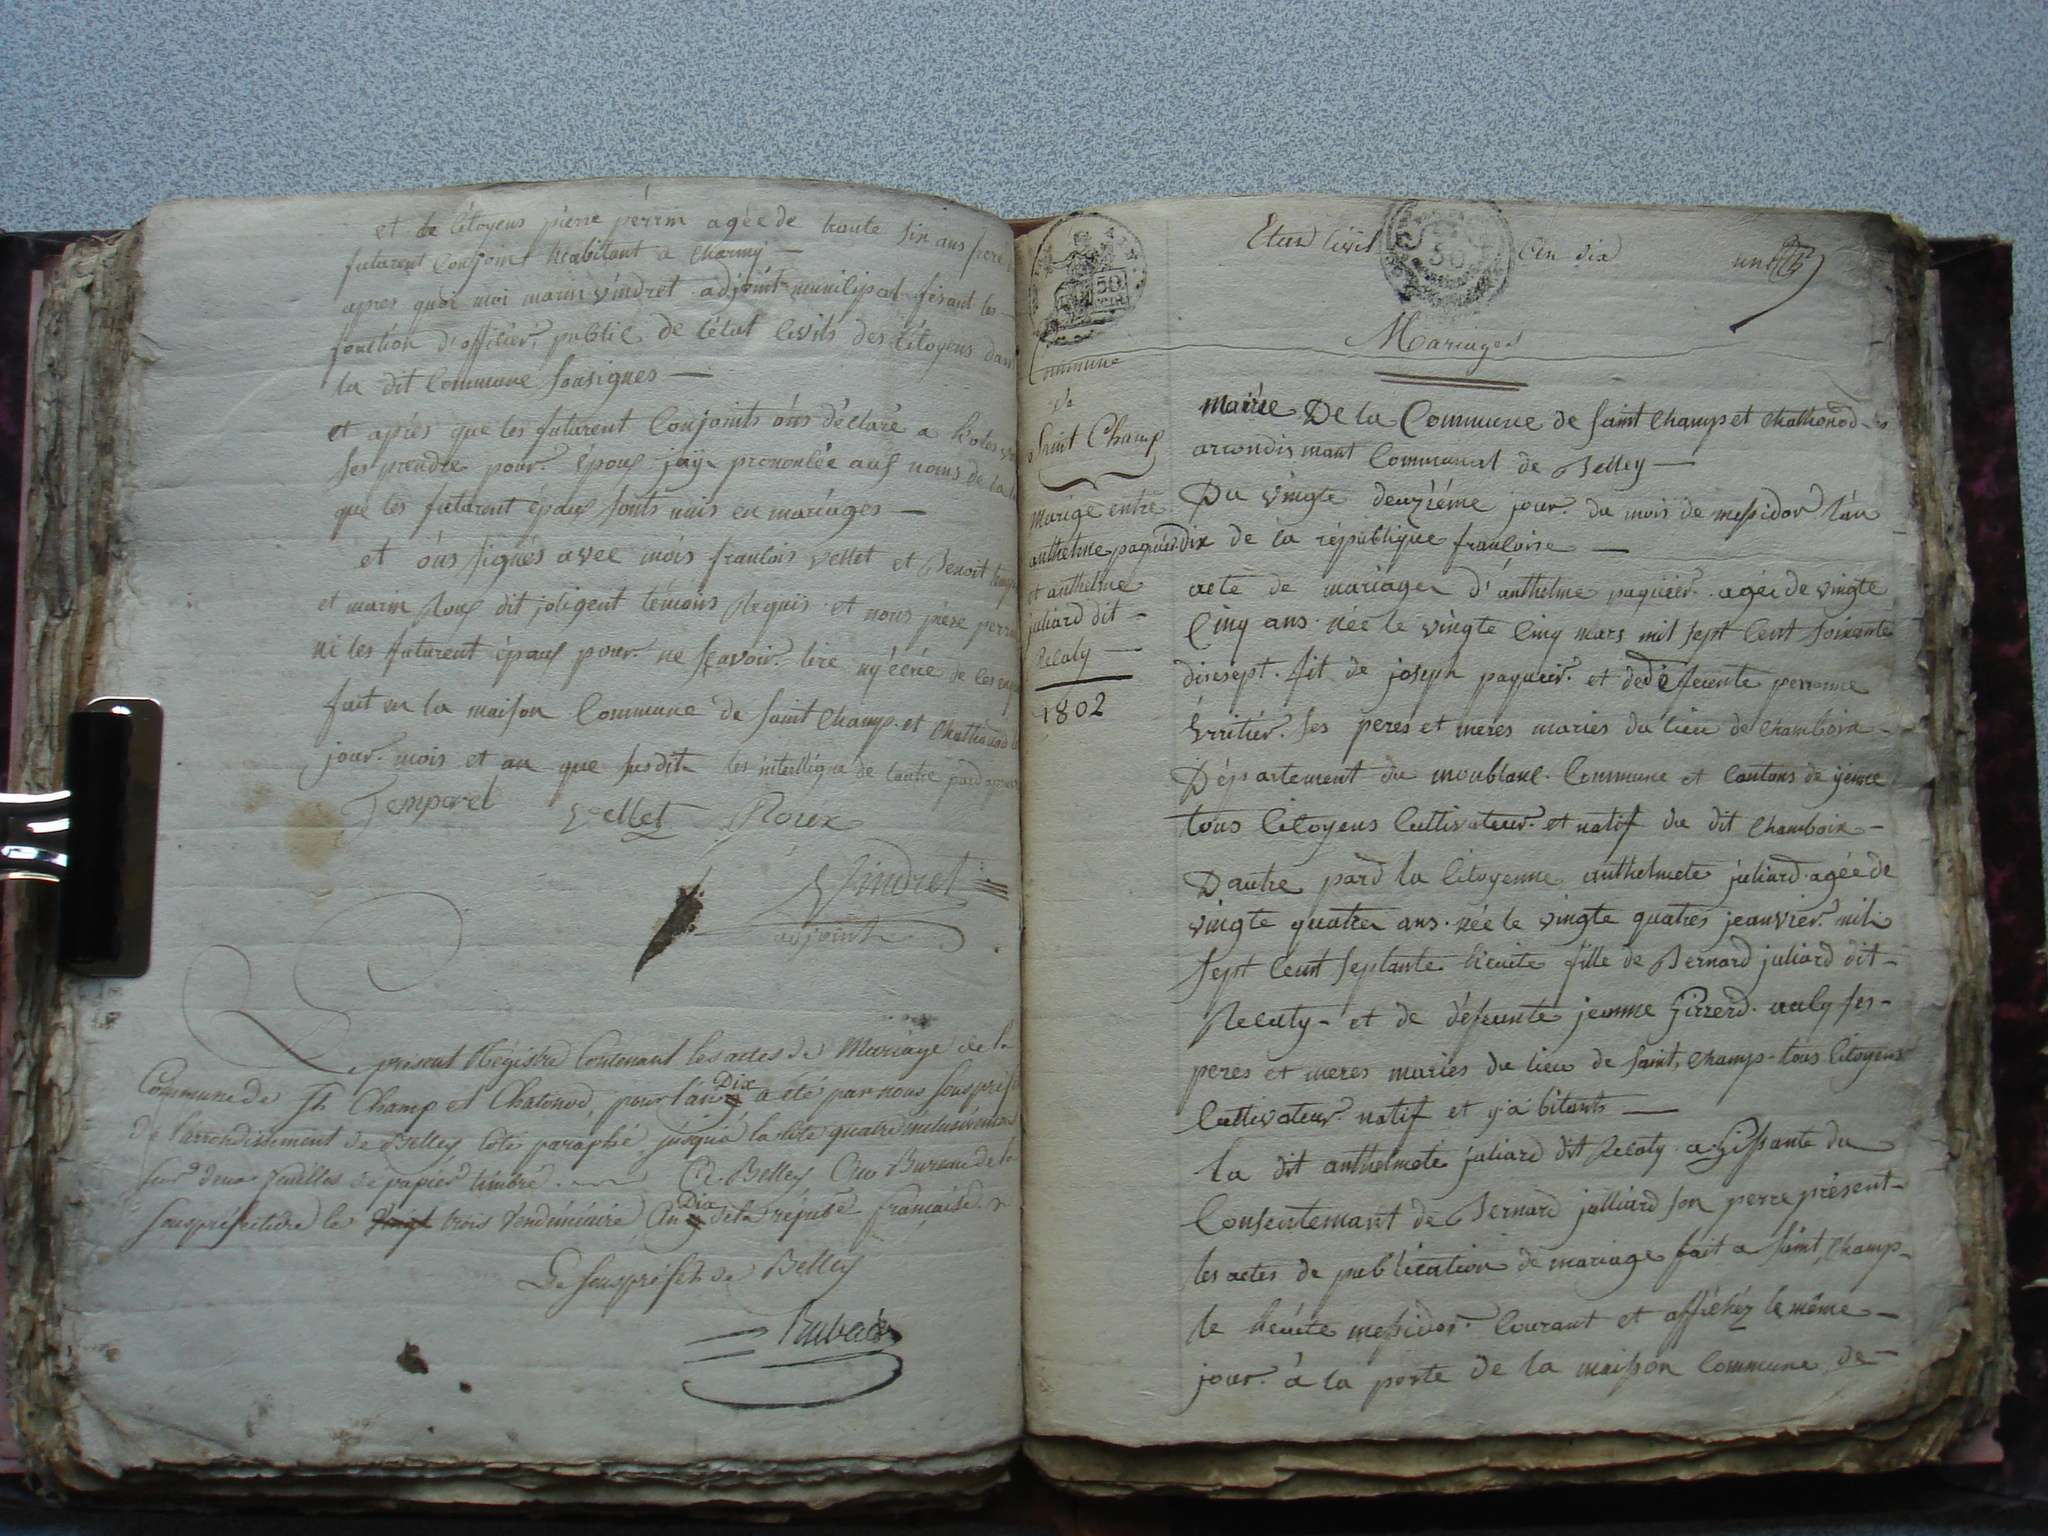 et de Citoyens pierre perrin agée de trante six ans frere
futurent Conjoint heabitant a Charmy —
apres quoi moi marin vindret adjoint municipal fesant les
fonction d'officier public de l'état Civils des Citoyens dans
la dit Commune sousignes —
et après que les futurent Conjoints óns déclaré a
ses prendre pour épous jay prononcée aus noms de la
que les futurent épaus sonts unis en mariages —
et óns signés avec mois francois vellet et Benoit
et marin Rous dit joligent témoins Requis et nous
ni les futurent épaus pour ne sçavoir lire ny écrie de
fait en la maison Commune de saint Champ et Chathonod
jour mois et an que susdit les interlligne de lautre pard
Temporel Vellet Roux
Vindret
adjoint
Le présent Registre Contenant les actes de Mariage de la
Commune de St Champ et Chatonod, pour l'an Dix a été par nous souspréfet
De l'arrondissement de Belley coté paraphé jusqu'à la cote quatre inclusivement
sur deux feuilles de papier timbré. A Belley Au Bureau de la
souspréfecture le vingt trois Vendémiaire An Dix de la répube française
Le souspréfet de Belley
Rubat
Etat Civil An dix un
50
Mariages
Commune
de
Saint Champ
Marige entre
anthelme paquier
et anthelme
juliard dit —
Recaty —
1802
Mairie De la Commune de saint Champ et Chathonod —
arrondismant Communal de Belley —
Du vingte deuziéme jour du mois de messidor l'an
dix de la république francoise —
acte de mariager d'anthelme paquier agée de vingte
Cinq ans née le vingte Cinq mars mil sept Cent soixante
dixsept fit de joseph paquier et de défeunte perronne
Érritier ses peres et meres maries du lieu de Chamboin —
Département du moublanc Commune et Cantons de yenne
tous Citoyens Cultivateur et natif du dit Chamboin —
D'autre pard la Citoyenne anthelmete juliard agée de
vingte quatre ans née le vingte quatres jeanvier mil
sept Cent septante héuite fille de Bernard juliard dit —
Recaty — et de défeunte jeanne Girrerd auly ses —
peres et meres maries du lieu de saint Champ tous Citoyens
Cultivateur natif et y'a bitants —
la dit anthelmete juliard dit Recaty agissante du
Consentemant de Bernard julliard son perre présent —
les actes de publication de mariage fait a saint Champ —
le héuite messidor Courant et affichéz le même —
jour à la porte de la maison Commune de —